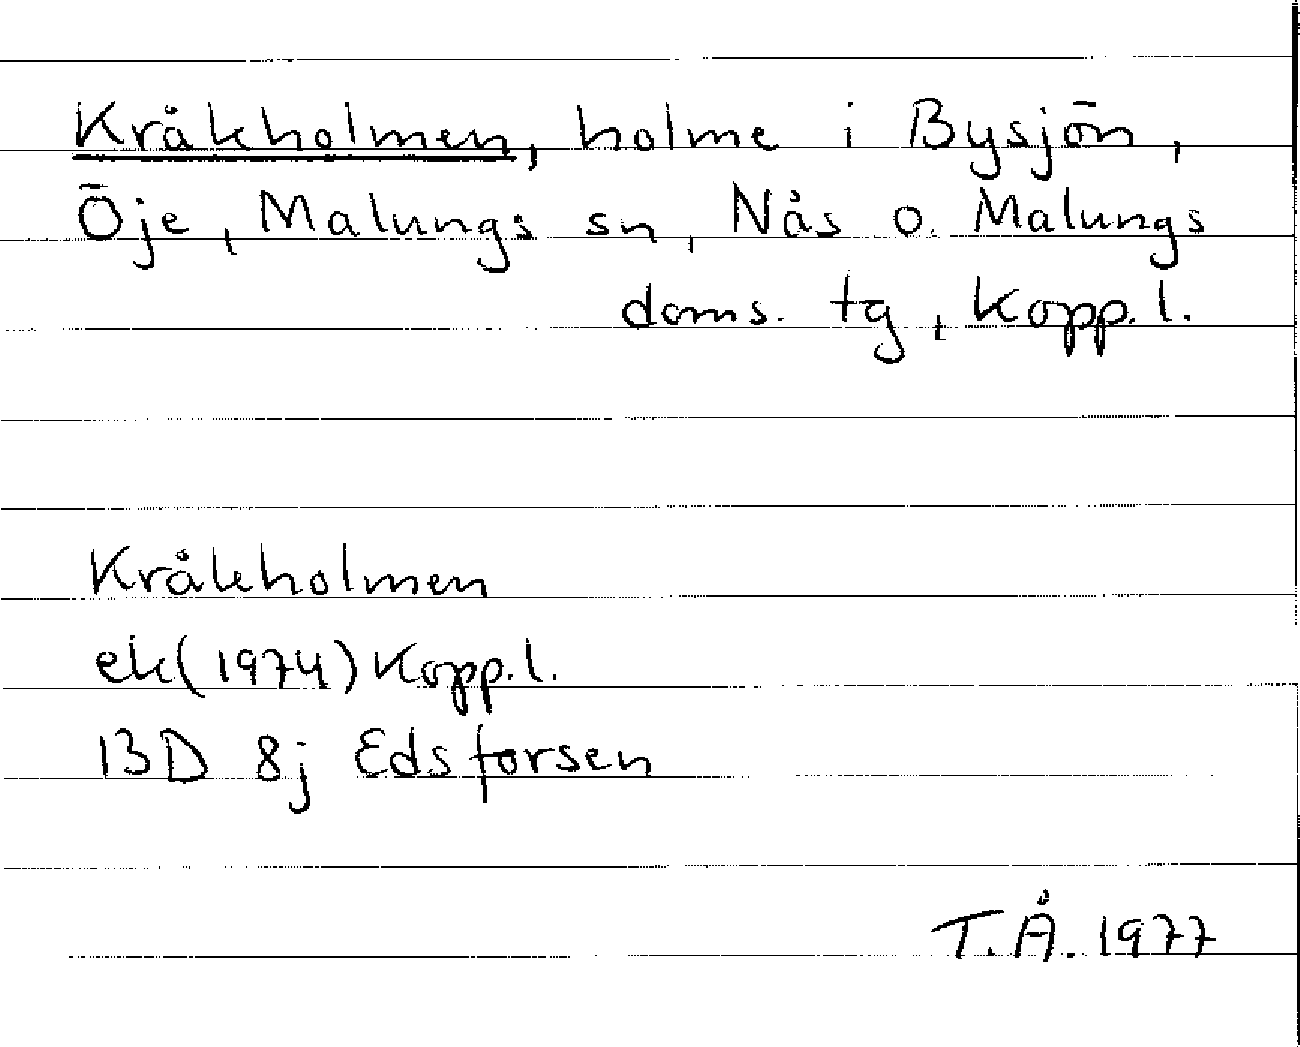 Kråkholmen, holme i Bysjön,
Öje, Malungs sn, Nås o. Malungs
doms. tg, Kopp. l.
Kråkholmen
ek(1974) Kopp. l.
13D 8j Edsforsen
T.Å. 1977